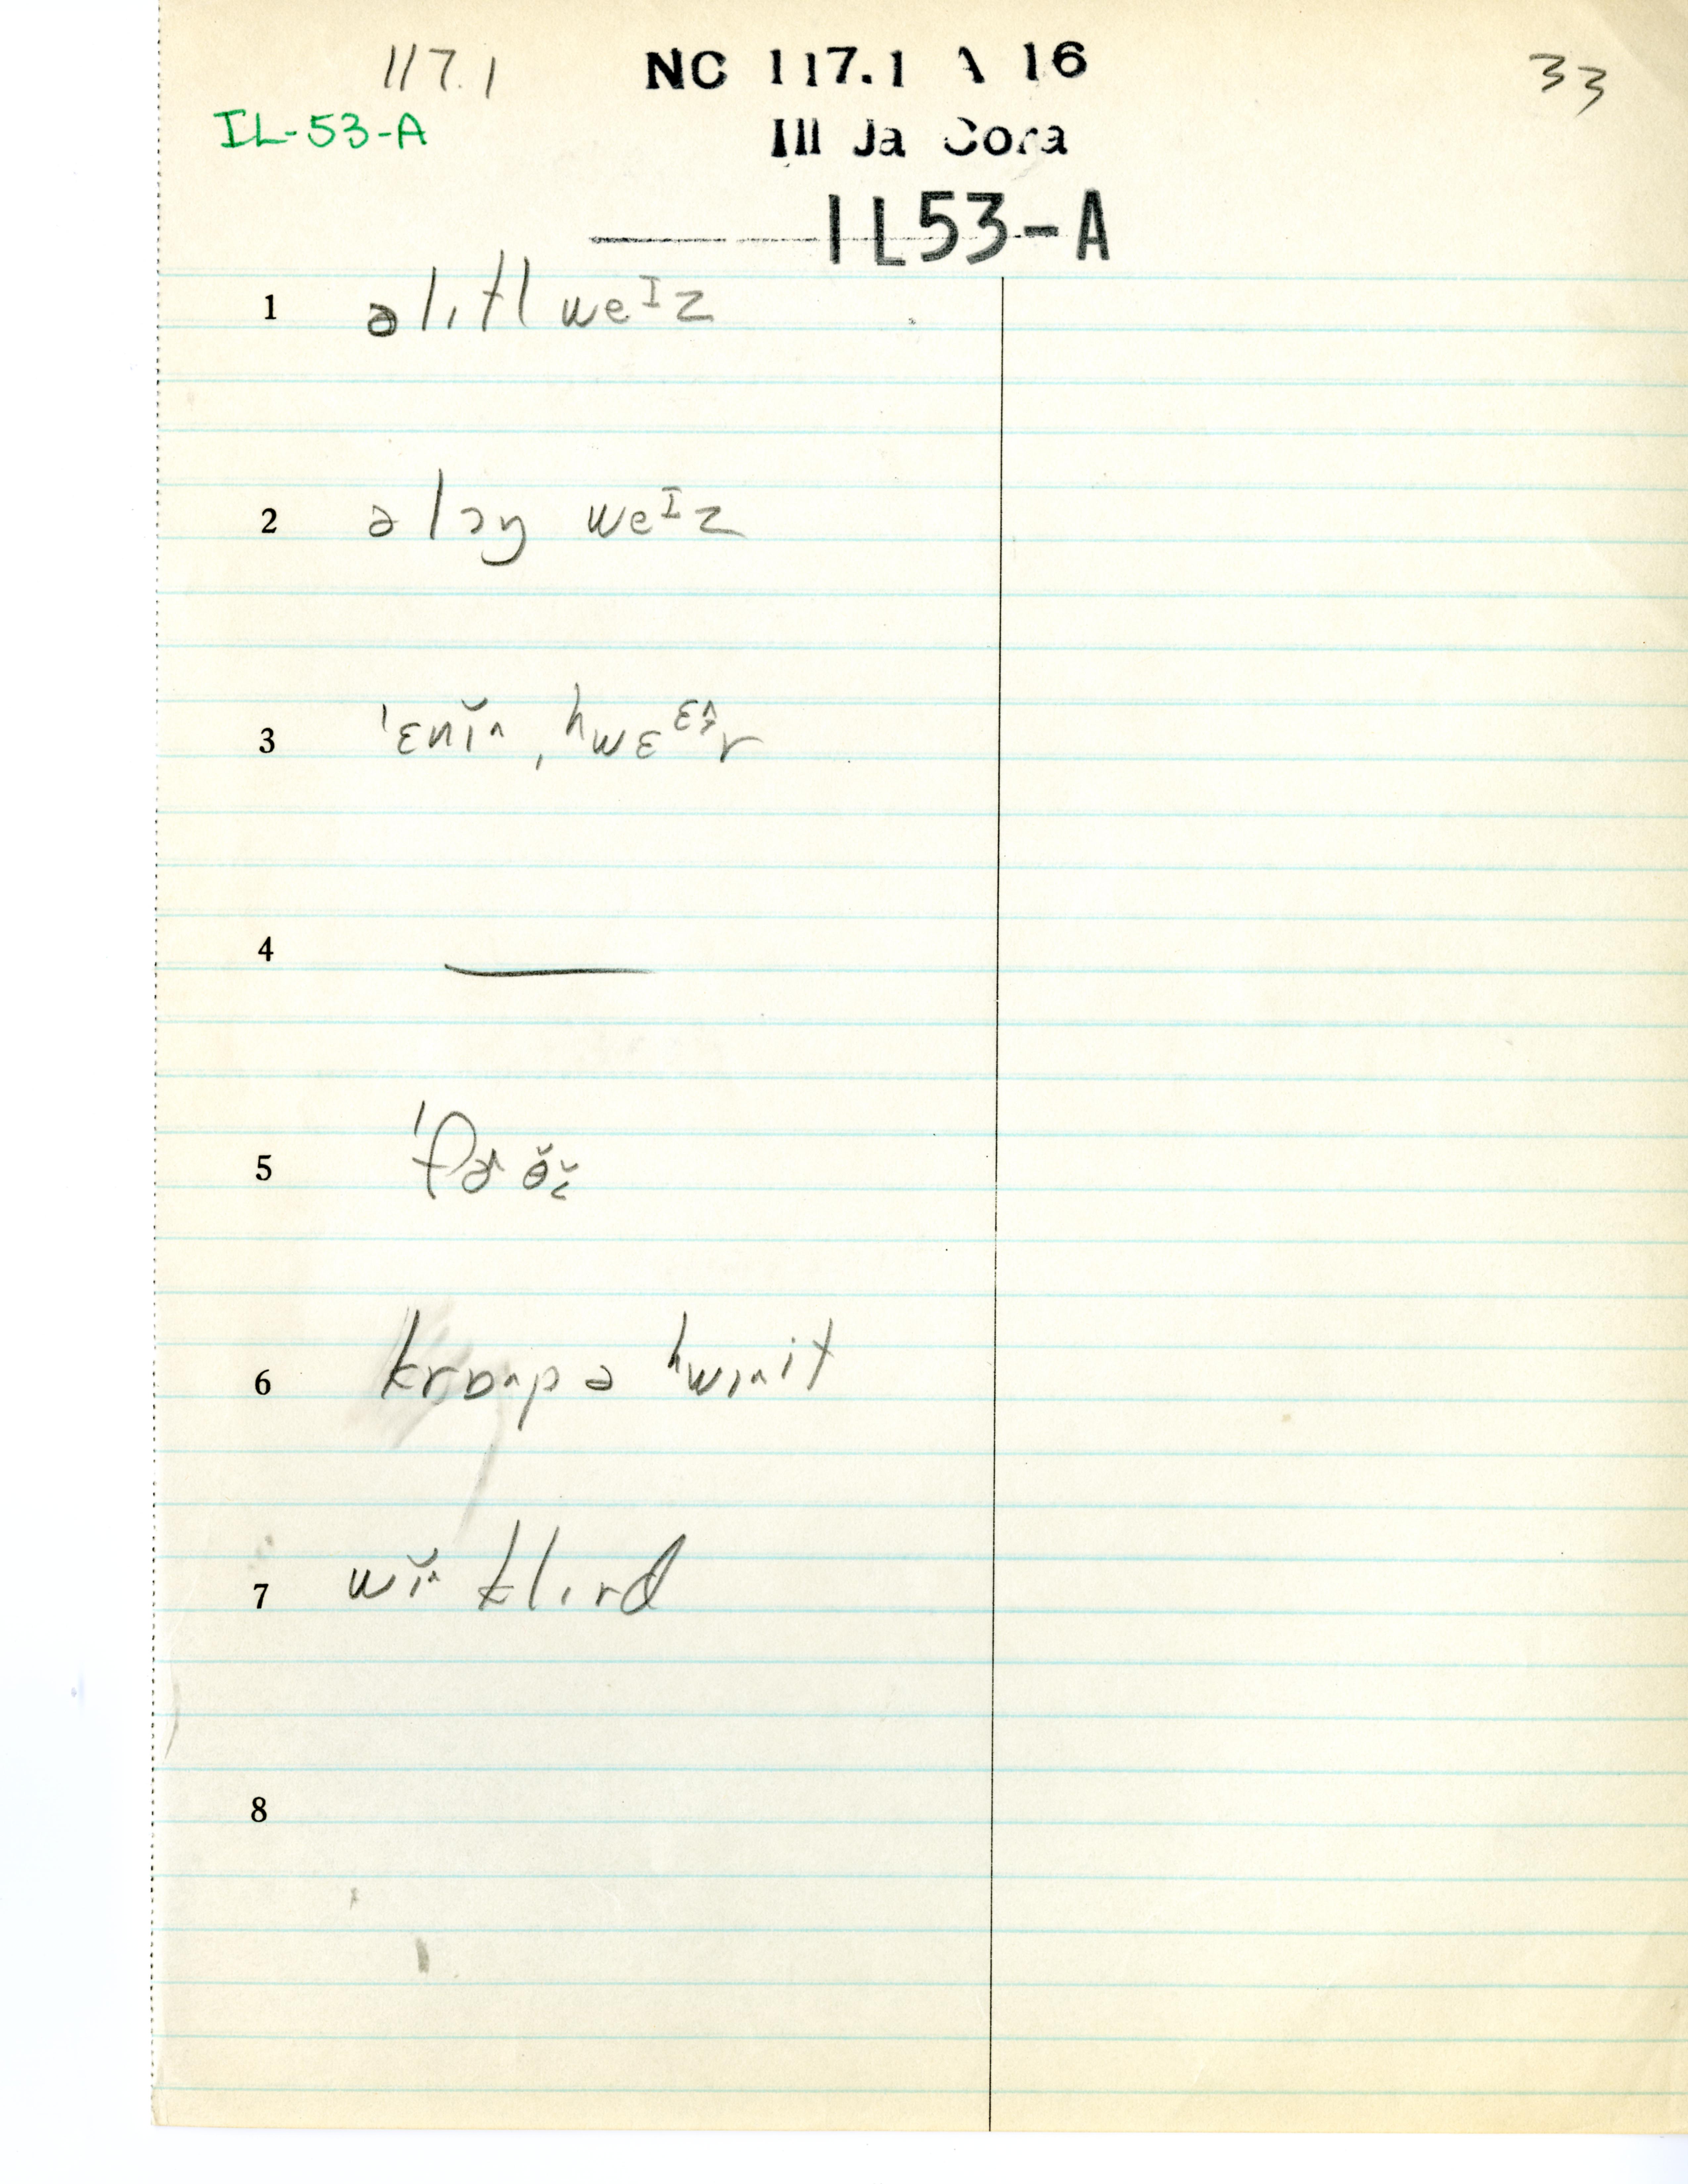 117.1 NC 117.1 A 16 33
IL-53-A Ill Ja Cora
IL53-A
1 əlɪtl weᴵz
2 ə lɔŋ weᴵz
3 ˈɛnĭ˄, hwɛᵋə̂r
4
5
6 krɒ˄p ə hwɪ˄it
7 wĭ˄ klɪrd
8